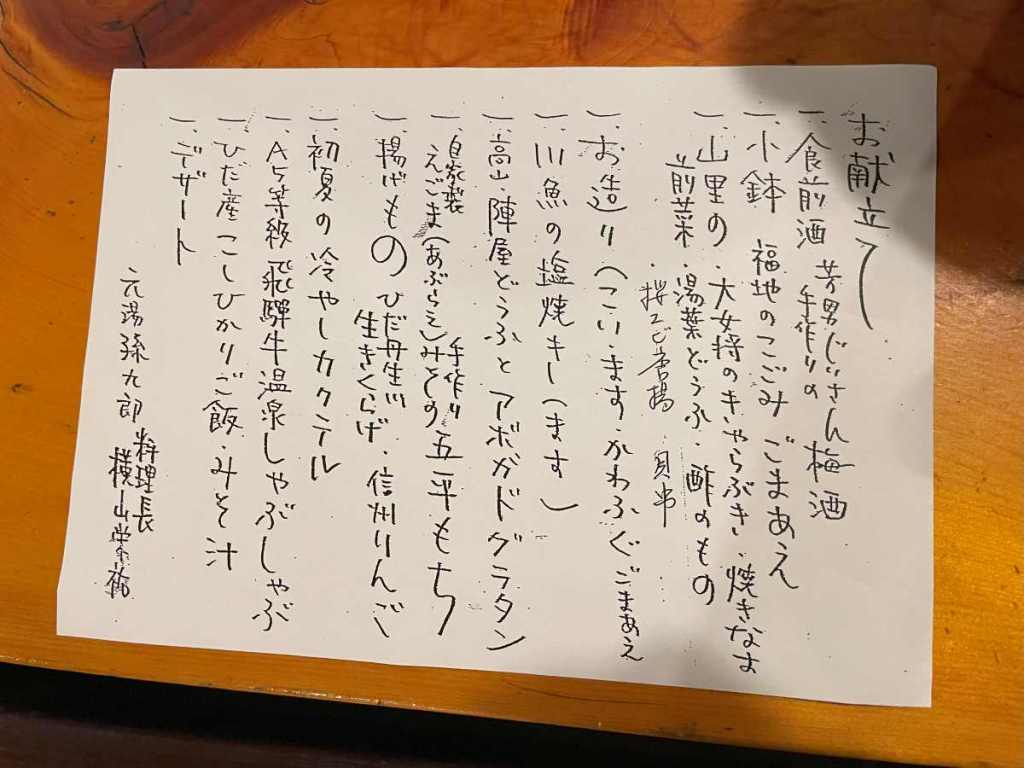 お献立て
一、食前酒 芳男じいさん手作りの 梅酒
一、小鉢 福地のこごみ ごまあえ
一、山里の前菜 ・大女将のきゃらぶき・焼きなす
・湯葉どうふ・酢のもの
・桜えび唐揚 貝串
一、お造り(こい・ます・かわふぐごまあえ
一、川魚の塩焼き(ます)
一、高山・陣屋どうふとアボガドグラタン
一、自家製えごま(あぶらえ)みその 手作り五平もち
一、揚げもの ひだ丹生川生きくらげ・信州りんご
一、初夏の冷やしカクテル
一、A5等級飛騨牛温泉しゃぶしゃぶ
一、ひだ産こしひかりご飯・みそ汁
一、デザート
元湯孫九郎 料理長 横山栄